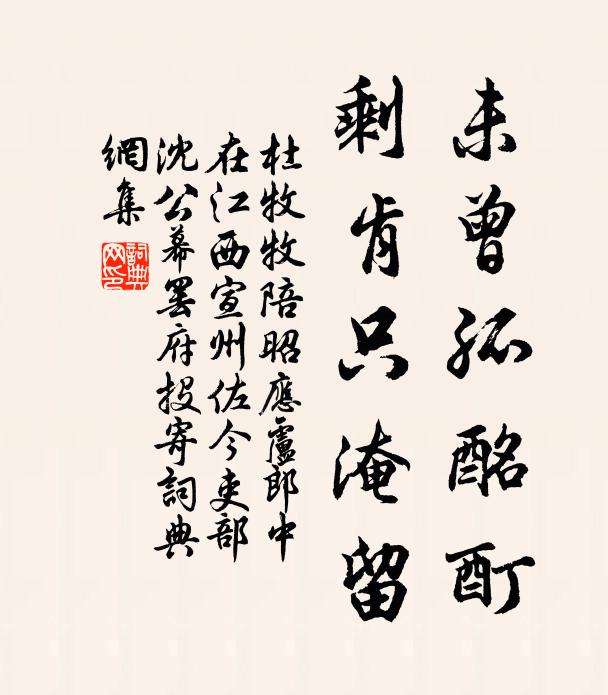 未曾孤酩酊
剩肯只淹留
杜牧牧陪昭應盧郎中
在江西宣州佐今吏部
沈公幕罷府投寄詞典
網集
詞典網印